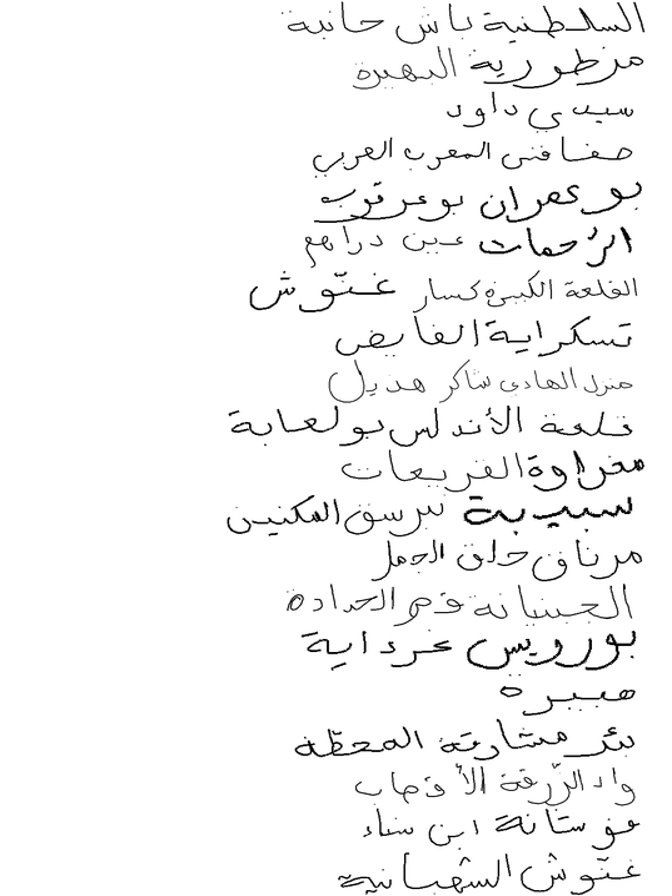 السلطنية باش حانبة
مزطورية البهيرة
سيدي داود
صفافنى المعرب العربي
بوعمران بوعرقوب
الرحمات عين دراهم
القلعة الكبيرة كسار غنّوش
تسكراية الفايض
منزل الهادي شاكر هذيل
قلعة الأندلس بولعابة
مغراوة القريعات
سبيبة نبرسق المكنين
مرناق حلق الجمل
الجبنيانة قصر الحدادة
بورويس غرداية
هبيرة
بئر مشارقة المحطّة
واد الزّرقة الأقصاب
فوستانة ابن سناء
غنّوش الشهبانية